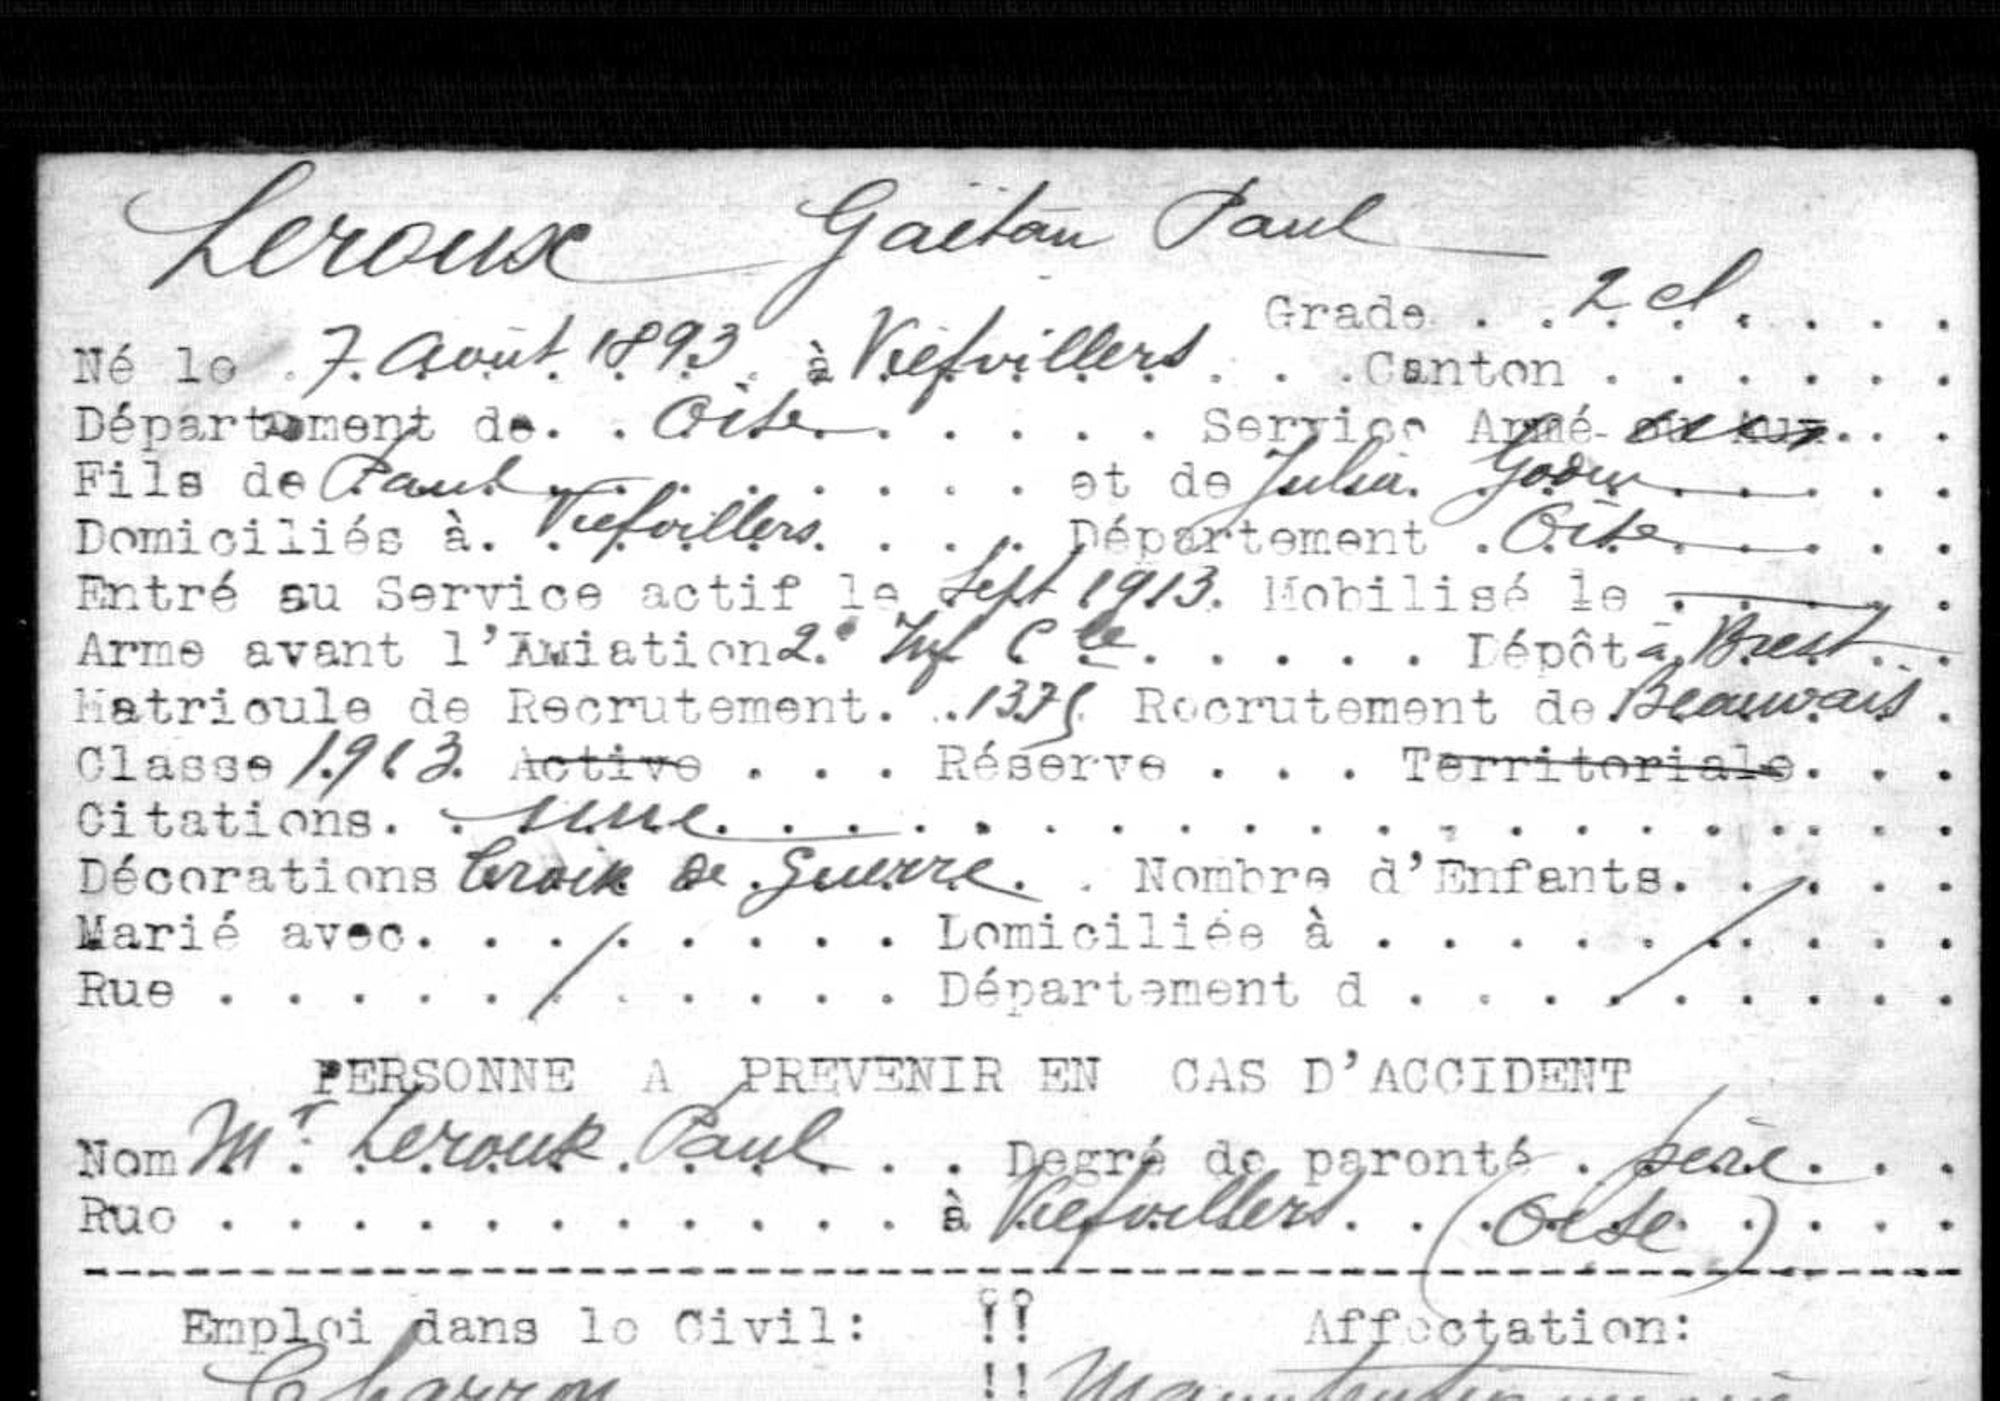 Leroux Gaëtan Paul
Grade . . 2 cl . . . . .
Né le . 7 Août 1893 . à Viefvillers . . . Canton . . . . . .
Département de . . Oise . . . . . . Service Armé
Fils de Paul . . . . . . . et de Julia
Domiciliés à . Viefvillers . . . . Département . Oise . . . .
Entré au Service actif le Sept 1913 . Mobilisé le . — .
Arme avant l'Aviation 2e Inf Cle . . . . . Dépôt à Brest . .
Matricule de Recrutement . . . 1375 Recrutement de Beauvais .
Classe 1913 Active . . . Réserve . . . Territoriale . . .
Citations . . une . . . . . . . . . . . . . . . .
Décorations Croix de Guerre . . Nombre d'Enfants . . . . . .
Marié avec . . . / . . . . . Domiciliée à . . . . . / . . . .
Rue . . . . . / . . . . . . Département d . . . . / . . . . .
PERSONNE A PREVENIR EN CAS D'ACCIDENT
Nom Mr Leroux Paul . . Degré de parenté . père . . .
Rue . . . . . . . . . . . à Viefvillers . . (Oise) . . .
Emploi dans le Civil: !! Affectation:
Charron !!